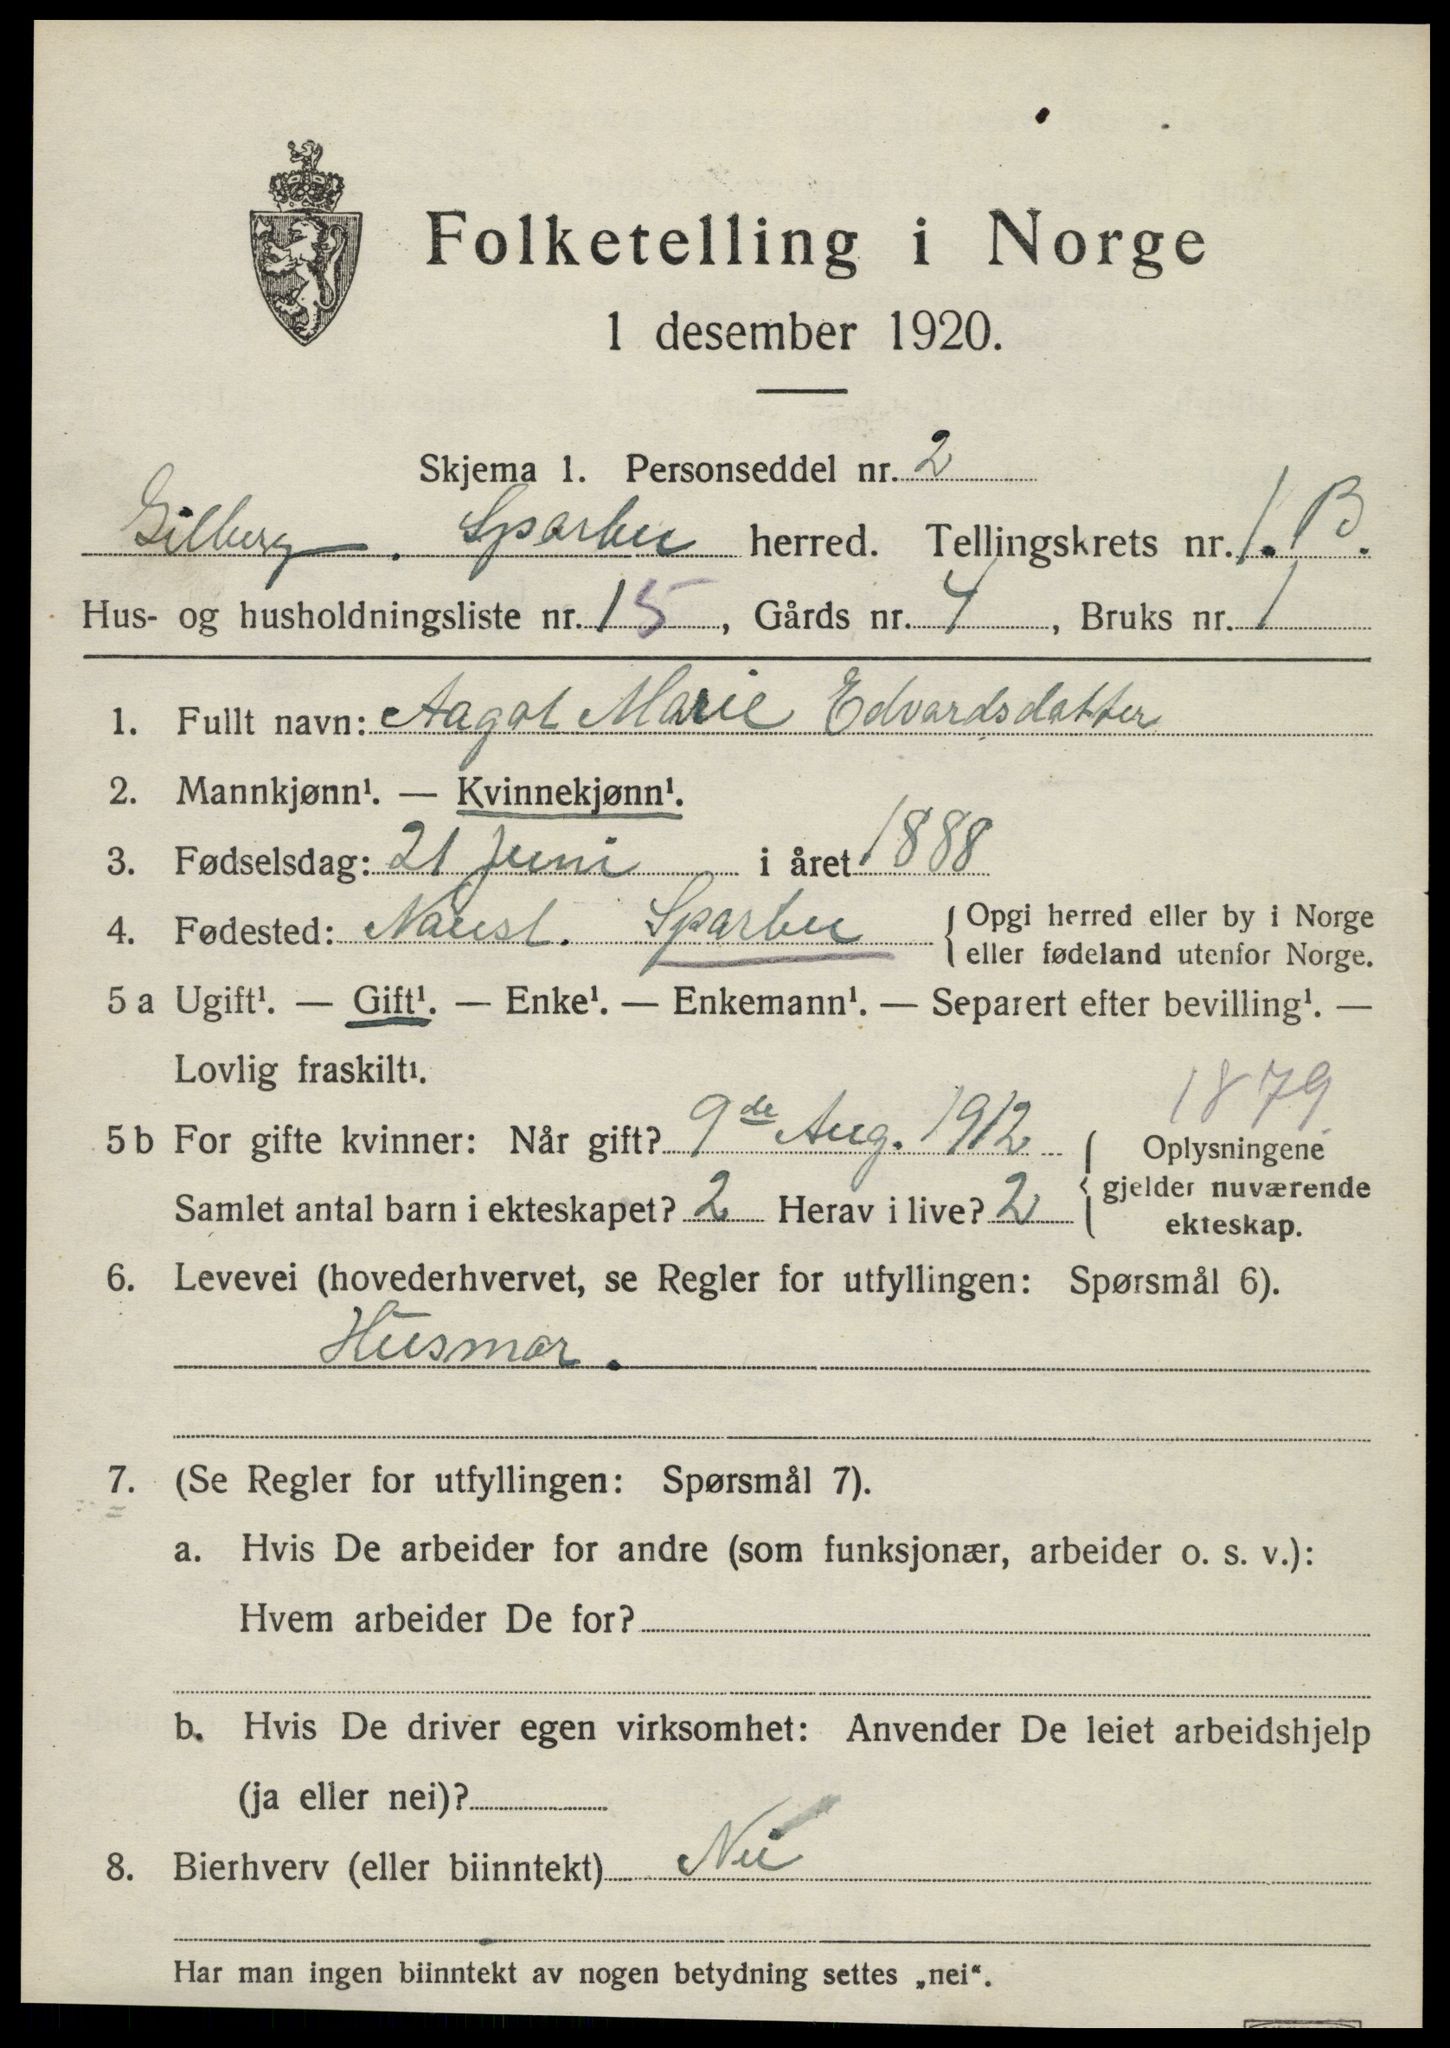 Folketelling i Norge
1 desember 1920.
Skjema 1. Personseddel nr. 2
Gilberg. Sparbu herred. Tellingskrets nr. 1. B.
Hus- og husholdningsliste nr. 15, Gårds nr. 4, Bruks nr. 1
1. Fullt navn: Aagot Marie Edvardsdatter
2. Mannkjønn¹. — Kvinnekjønn¹.
3. Fødselsdag: 21 Juni i året 1888
4. Fødested: Naust. Sparbu { Opgi herred eller by i Norge
eller fødeland utenfor Norge.
5 a Ugift¹. — Gift¹. — Enke¹. — Enkemann¹. — Separert efter bevilling¹. —
Lovlig fraskilt¹.
1879
5 b For gifte kvinner: Når gift? 9de Aug. 1912 { Oplysningene
gjelder nuværende
ekteskap.
Samlet antal barn i ekteskapet? 2 Herav i live? 2
6. Levevei (hovederhvervet, se Regler for utfyllingen: Spørsmål 6).
Husmor.
7. (Se Regler for utfyllingen: Spørsmål 7).
a. Hvis De arbeider for andre (som funksjonær, arbeider o. s. v.):
Hvem arbeider De for?
b. Hvis De driver egen virksomhet: Anvender De leiet arbeidshjelp
(ja eller nei)?
8. Bierhverv (eller biinntekt) Nei
Har man ingen biinntekt av nogen betydning settes „nei“.